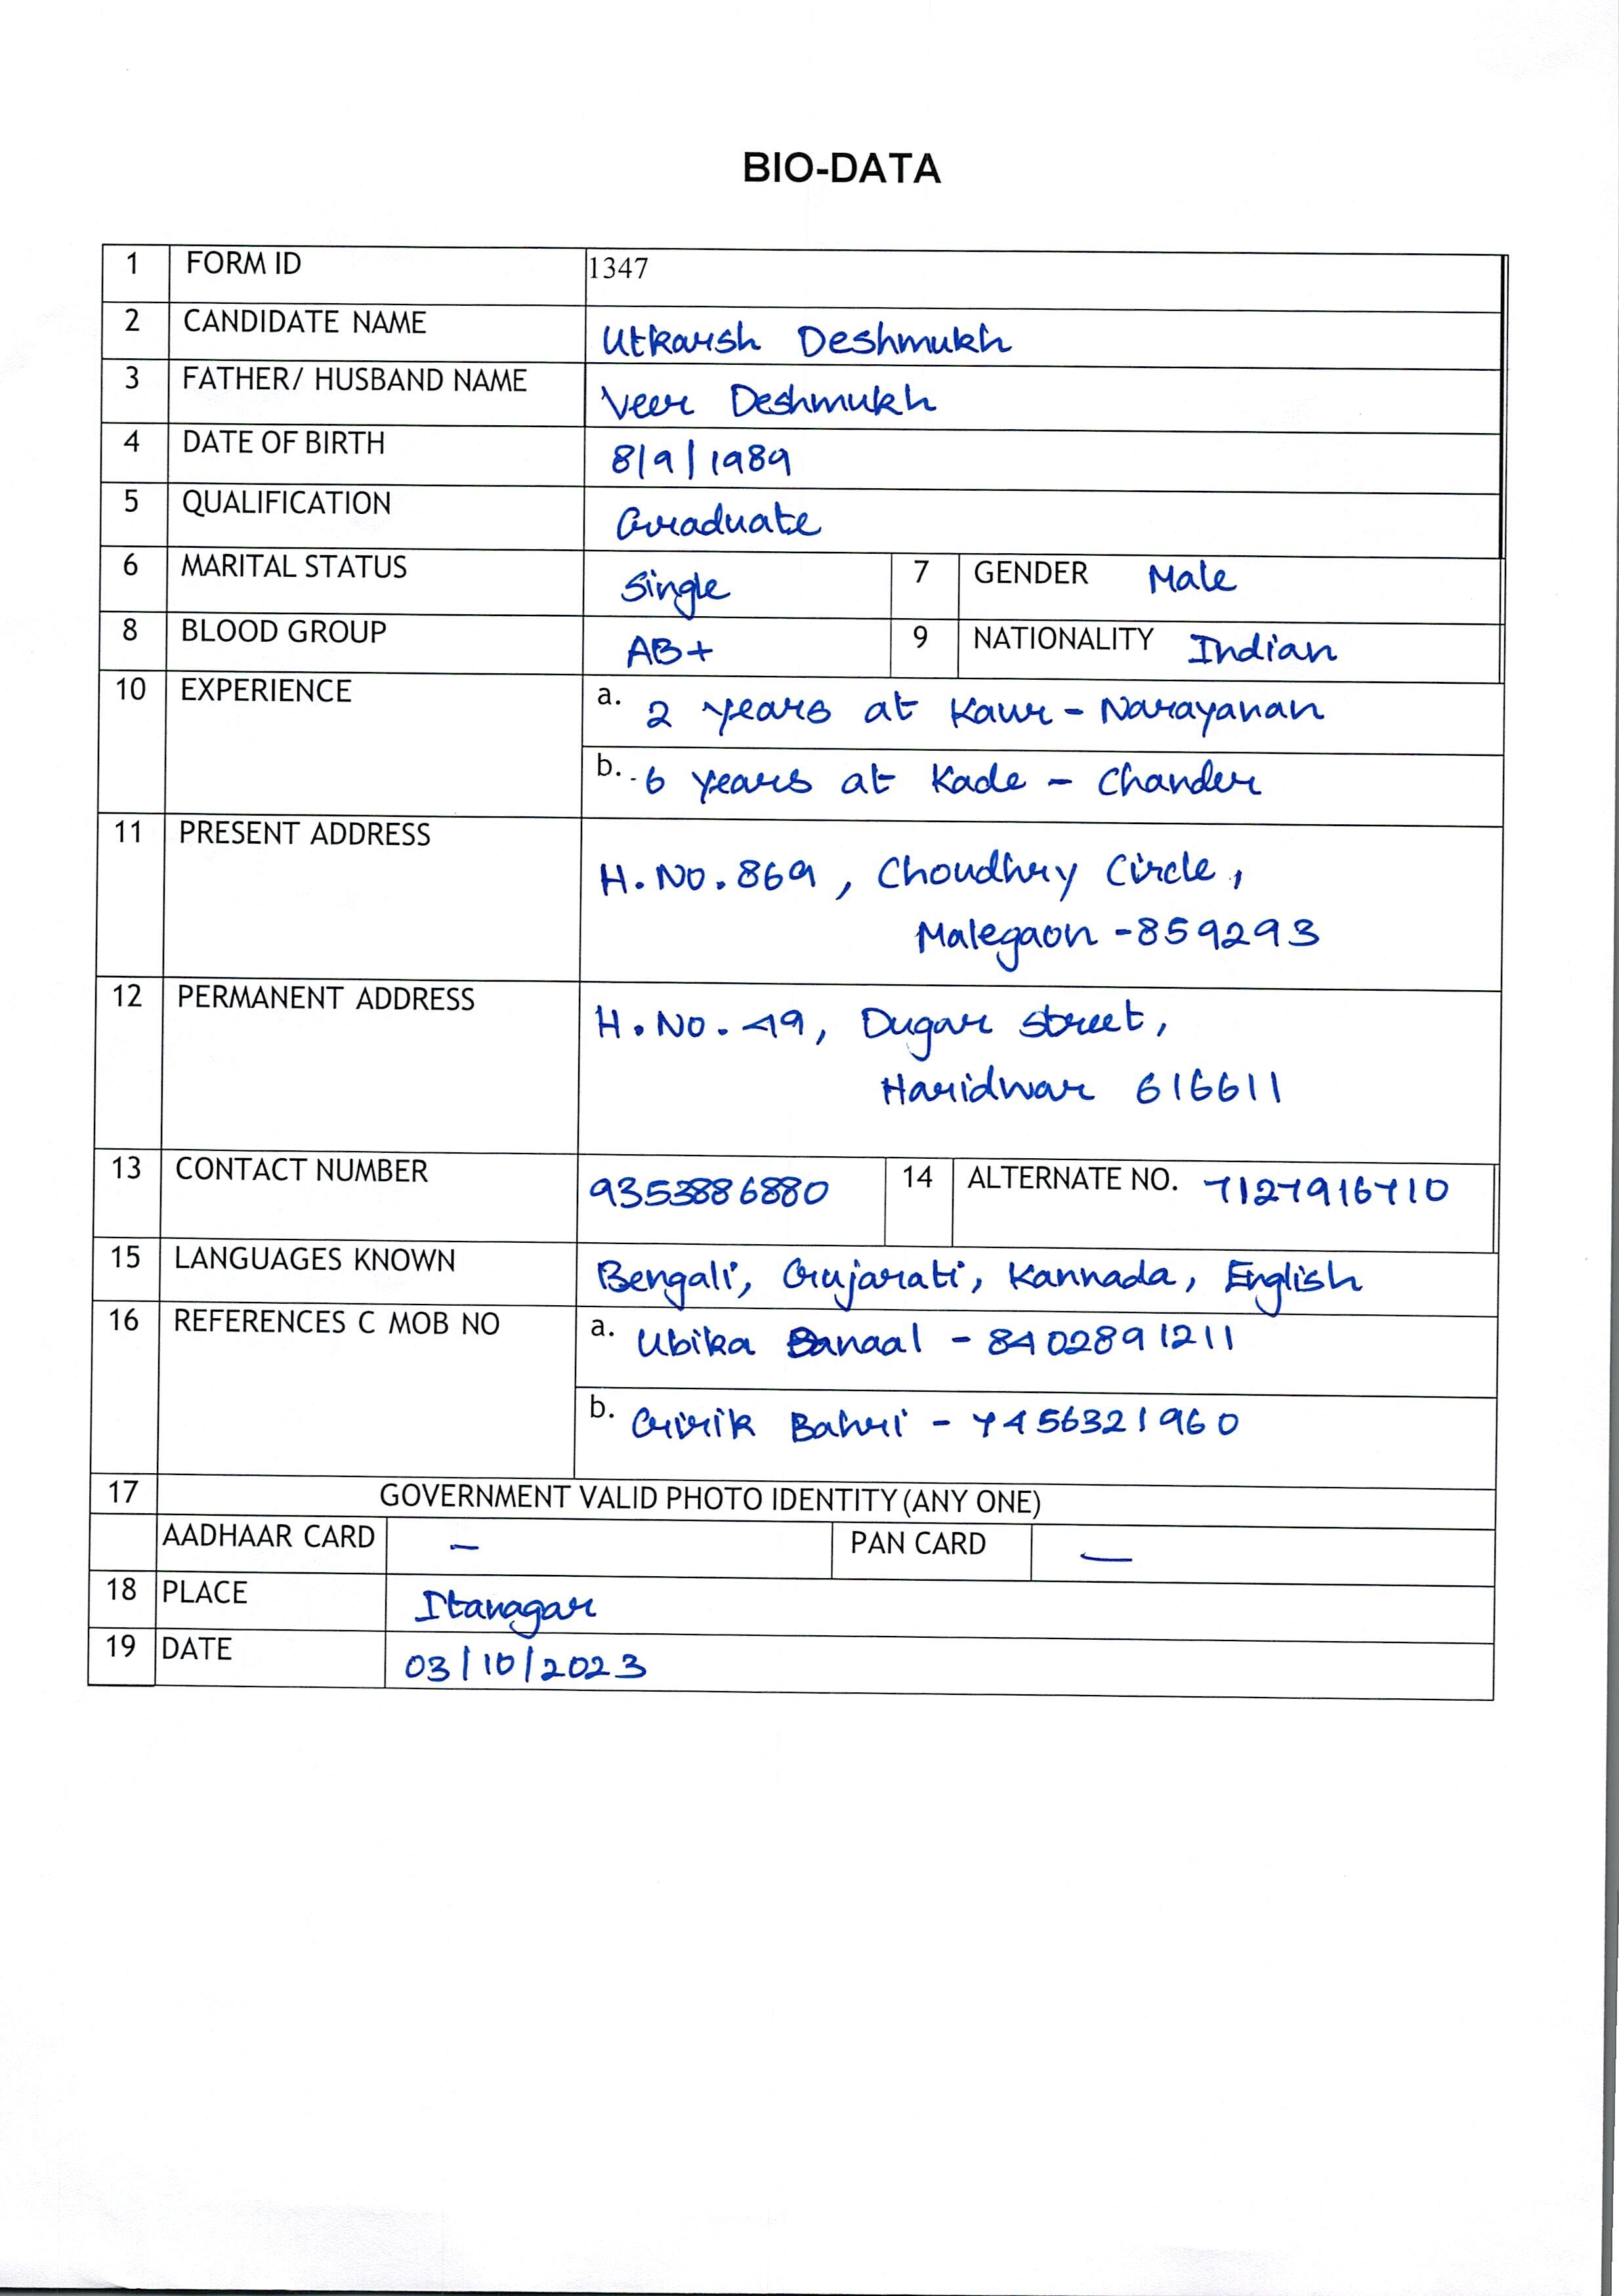 BIO-DATA
1 FORM ID 1347
2 CANDIDATE NAME Utkarsh Deshmukh
3 FATHER/ HUSBAND NAME Veer Deshmukh
4 DATE OF BIRTH 8/9/1989
5 QUALIFICATION Graduate
6 MARITAL STATUS Single 7 GENDER Male
8 BLOOD GROUP AB+ 9 NATIONALITY Indian
10 EXPERIENCE a. 2 years at Kaur - Narayanan
b. 6 years at Kade - Chander
11 PRESENT ADDRESS
H. No. 869, Choudhry Circle,
Malegaon - 859293
12 PERMANENT ADDRESS H. No. 49, Dugar Street,
Haridwar 616611
13 CONTACT NUMBER 9353886880 14 ALTERNATE NO. 7127916710
15 LANGUAGES KNOWN Bengali, Gujarati, Kannada, English
16 REFERENCES C MOB NO a. Ubika - 8402891211
b. Girik Bahri - 7456321960
17 GOVERNMENT VALID PHOTO IDENTITY (ANY ONE)
AADHAAR CARD - PAN CARD -
18 PLACE Itanagar
19 DATE 03/10/2023